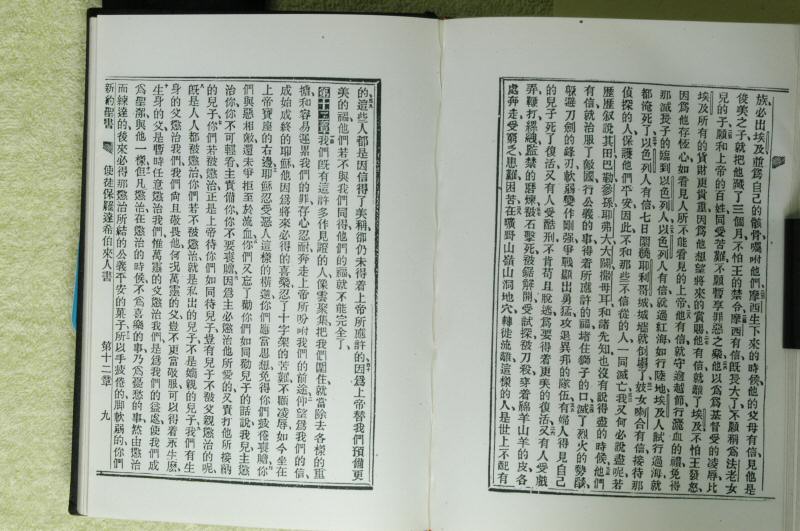 族必出埃及、並爲自己的骸骨囑咐他們、摩西生下來的時候、他的父母有信、見他是
俊美之子、就把他藏了三個月、不怕王的禁令、摩西有信、旣長大了、不願稱爲法老女
兒的子、願和上帝的百姓同受苦難、不願暫享罪惡之樂、他以爲爲基督受的凌辱、比
埃及所有的貨財更貴重、因爲他想望將來的賞賜、他有信就離了埃及、不怕王發怒、
因爲他存恆心、如看見人所不能看見的上帝、他有信就守逾越節、行灑血的禮、免得
那滅長子的臨到以色列人、以色列人有信、就過紅海如行陸地、埃及人試行過海就
都淹死了、以色列人有信、七日圍繞耶利哥城、城墻就倒塌了、妓女喇合有信、接待那
偵探的人、保護他們平安、因此不和那些不信從的人一同滅亡、我又何必說盡呢、若
歷歷叙說其田巴勒參孫耶弗大大闢撒母耳和諸先知、也沒有說得盡的時候、他們
有信就治服了敵國、行公義的事、得着所應許的福、堵住獅子的口、滅了烈火的勢、
躱避刀劍的鋒刃、軟弱變作剛强、爭戰顯出勇猛、攻退異邦的隊伍、有婦人得見自己
的兒子死了復活、又有人受酷刑、不肯苟且脫逃、爲要得着更美的復活、又有人受戲
弄鞭打縲絏監禁的磨煉、石擊死、被鋸解開、受試探、被刀殺、穿着綿羊山羊的皮、各
處奔走、受窮乏患難困苦、在曠野山嶺山洞地穴、轉徙流離、這樣的人是世上不配有
的、這些人都是因信得了美稱、卻仍未得着上帝所應許的、因爲上帝替我們預備更
美的福、他們若不與我們同得、他們的福就不能完全了、
第十二章 我們旣有這許多作見證的人、像雲聚集把我們圍住、就當除去各樣的重
擔、和容易遷累我們的罪、存心忍耐、奔走上帝所吩咐我們的前途、仰望爲我們的信
成始成終的耶穌、他因爲將來必得的喜榮、忍了十字架的苦難、不顧凌辱、如今坐在
上帝寶座的右邊、耶穌忍受惡人這樣的橫逆、你們應當思想、免得你們疲倦喪膽、你
們與惡相敵、還未爭拒至於流血、你們又忘了勸你們如同勸兒子的話說、我兒、主懲
治你、你不可輕看、主責備你、你不要喪膽、因爲主必懲治他所愛的、又責打他所接納
的兒子、你們若被懲治、正是上帝待你們如同待兒子、豈有兒子不被父親懲治的呢、
旣是人人都被懲治、你們若不被懲治、就是私出的兒子、不是嫡親的兒子、我們有生
身的父懲治我們、我們尙且敬畏他、何况萬靈的父、豈不更當敬服可以得着永生麽、
生身的父是暫時任意懲治我們、惟萬靈的父懲治我們、是爲我們的益處、使我們成
爲聖潔與他一樣、但凡懲治、在懲治的時候、不爲喜樂的事、乃爲憂愁的事、然由懲治
而練達的、後來必得那懲治所結的公義平安的菓子、所以手疲倦的、脚軟弱的、你們
新約聖書 使徒保羅達希伯來人書 第十二章 九